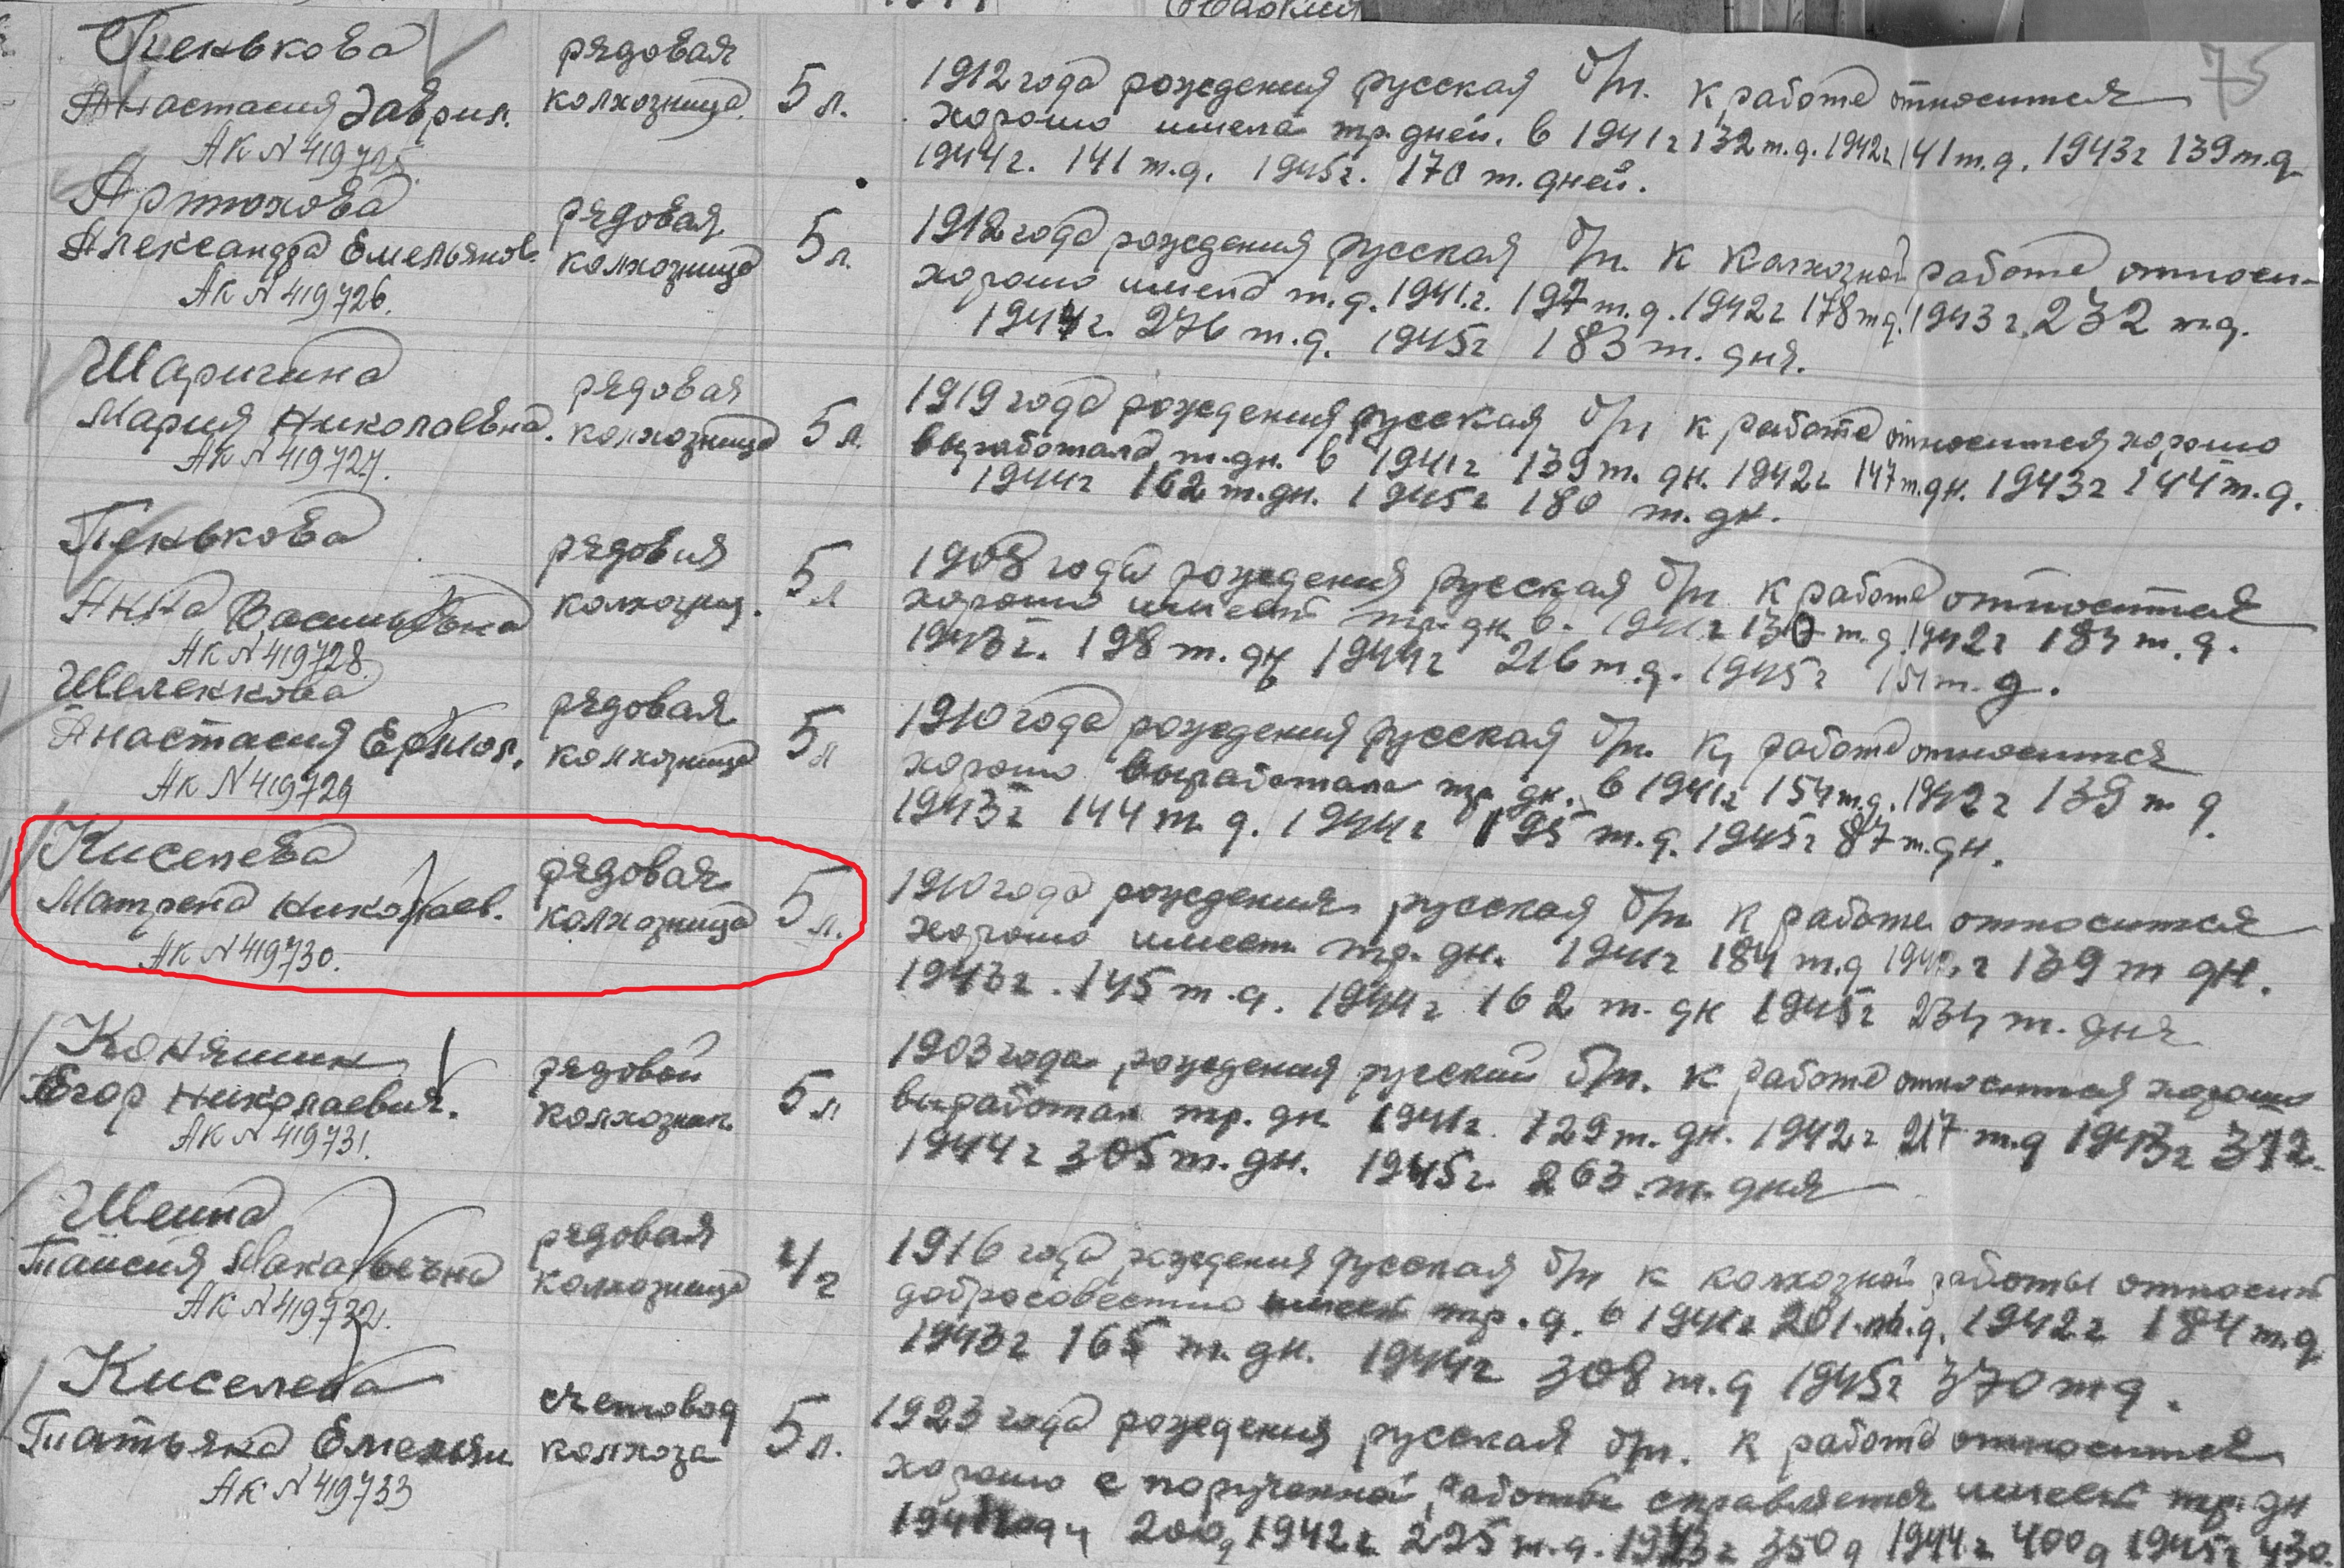 75
Пенькова
Анастасия Гаврил.
АК № 419725.
рядовая
колхозница.
5 л.
1912 года рождения русская б/п. к работе относится
хорошо имела тр. дней. в 1941г 132 т.д. 1942г 141 т.д. 1943г 139 т.д
1944г. 141 т.д. 1945г. 170 т. дней.
Артюхова
Александра Емельянов.
АК № 419726.
рядовая
колхозница
5 л.
1912 года рождения русская б/п. к колхозной работе относи-
хорошо имела т.д. 1941.г. 197 т.д. 1942г 178 т д. 1943г. 232 т.д.
1944г. 276 т.д. 1945г 183 т. дня.
Шаригина
Мария Николаевна.
АК № 419727.
рядовая
колхозница
5 л.
1919 года рождения русская б/п к работе относится хорошо
выработала т.дн. в 1941г 139 т. дн. 1942г 147 т.дн. 1943г 144 т.д.
1944г 162 т.дн. 1945г 180 т. дн.
Пенькова
Анна Васильевна
АК № 419728.
рядовия
колхозниц.
5 л
1908 года рождения русская б/п к работе относится
хорошо имеет тр. дн в. 1941г 130 т.д 1942г 184 т.д.
1943г. 198 т. дн 1944г 216 т.д. 1945г 151 т.д.
Шеленкова
Анастасия Ермол.
АК № 419729
рядовая
колхозница
5 л
1910 года рождения русская б/п. к работе относится
хорошо выработала тр. дн. в 1941г 154 т.д. 1942г 139 т д
1943г 144 т. д. 1944г 195 т.д. 1945г 87 т.дн.
Киселева
Матрена Николаев.
АК № 419730.
рядовая
колхозница
5 л.
1910 года рождения русская б/п к работе относится
хорошо имеет тр. дн. 1941г 184 т.д 1942г 139 т дн.
1943г. 145 т.д. 1944г 162 т. дн 1945г 234 т. дня
Коняшин
Егор Николаевич.
АК № 419731.
рядовой
колхозник.
5 л
1903 года рождения русский б/п. к работе относится хорошо
выработал тр. дн 1941г. 129 т. дн. 1942г 217 т.д 1943г 312
1944г 305 т. дн. 1945г. 263 т. дня
Шеина
Таисия Макарьечна
АК № 419732.
рядовая
колхозница
4/г
1916 года рождения русская б/п к колхозной работы относит
добросовестно имеет тр. д. в 1941г 201 т.д. 1942г 184 т.д
1943г 165 т. дн. 1944г 308 т.д 1945г 370 т д.
Киселева
Татьяна Емельян
АК № 419733
счетовод
колхоза
5 л.
1923 года рождения русская б/п. к работе относится
хорошо с порученной работой справляется имеет тр. дн
200д 1942г 225 т.д. 1943г 350 д 1944г 400д 1945г 430